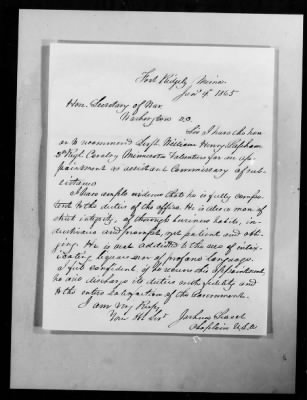 Fort Ridgely Minn.
Jan'y 4th 1865
Hon. Secretary of War
Washington D.C.
Sir I have the hon
or to recommend Sergt. William Henry
2d Regt. Cavalry Minnesota Volunteers for an ap
pointment as assistant Commissary of sub-
sistence
I have ample evidence that he is fully compe
tent to the duties of the office. He is also a man of
strict integrity, of thorough business habits, in-
dustrious and prompt, yet patient and obli-
ging. He is not addicted to the use of intoxi-
cating liquors or of profane language.
I feel confident, if he secures this appointment,
he will discharge its duties with fidelity and
to the entire satisfaction of the Government.
I am, very Resp'y
Your Obt Servt
Joshua
Chaplain U.S.A.